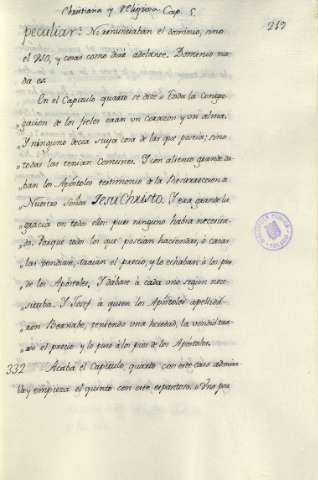 Christiana y Religiosa. Cap. 5.
219
peculiar: No renunciaban el dominio, sino
el uso, y cosas como diré adelante. Dominio na
da es.
En el Capitulo quarto se dice: Toda la Congre
gacion de los fieles eran un corazon y un alma.
Y ninguno decia suya cosa de las que poseia; sino
todas las tenian comunes. Y con aliento grande da
ban los Apóstoles testimonio de la Resurreccion a
Nuestro Señor Jesu Christo. Y era grande la
gracia en todos ellos pues ninguno habia necesita
do. Porque todos los que poseian haciendas, ó casas
las vendian, traian el precio, y lo echaban à los pies
de los Apóstoles. Y dabase à cada uno segun nece
sitaba. Y Josef à quien los Apóstoles apellida
ron Bernabé, teniendo una heredad, la vendió tra
xo el precio y lo puso à los pies de los Apóstoles.
332 Acaba el Capitulo quarto con este caso admira
ble y empieza el quinto con este espantoso. Uno por